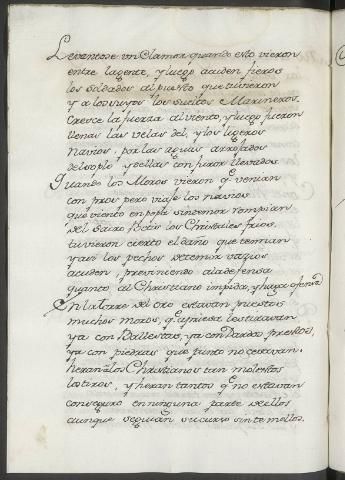 Levantose un clamor quando esto vieron
entre la gente, y luego acuden fieros
los soldados al puesto que tuvieron
y a los suyos los sueltos Marineros.
Cresce la fuerza al viento, y luego fueron
llenas las velas del, y los ligeros
navios, por las aguas arrojados
del soplo, y dellas con furor llevados.
Quando los Moros vieron q̃ venian
con prospero viaje los navios
que viento en popa sin temor rompian
del sacro Betis los Christales frios,
tuvieron cierto el daño que temian
y assi los pechos de temor vazios
acuden, previniendo a la defensa
quanto al Christiano impida, y haga ofensa
En la torre del oro estavan puestos
muchos moros, q̃ apriesa les tiravan
ya con Ballestas, ya con Dardos prestos,
ya con piedras que punto no cesavan.
heran a los Christianos tan molestos
los tiros, y heran tantos q̃ no estavan
con seguro en ninguna parte dellos
aunque seguian su curso sin temellos.